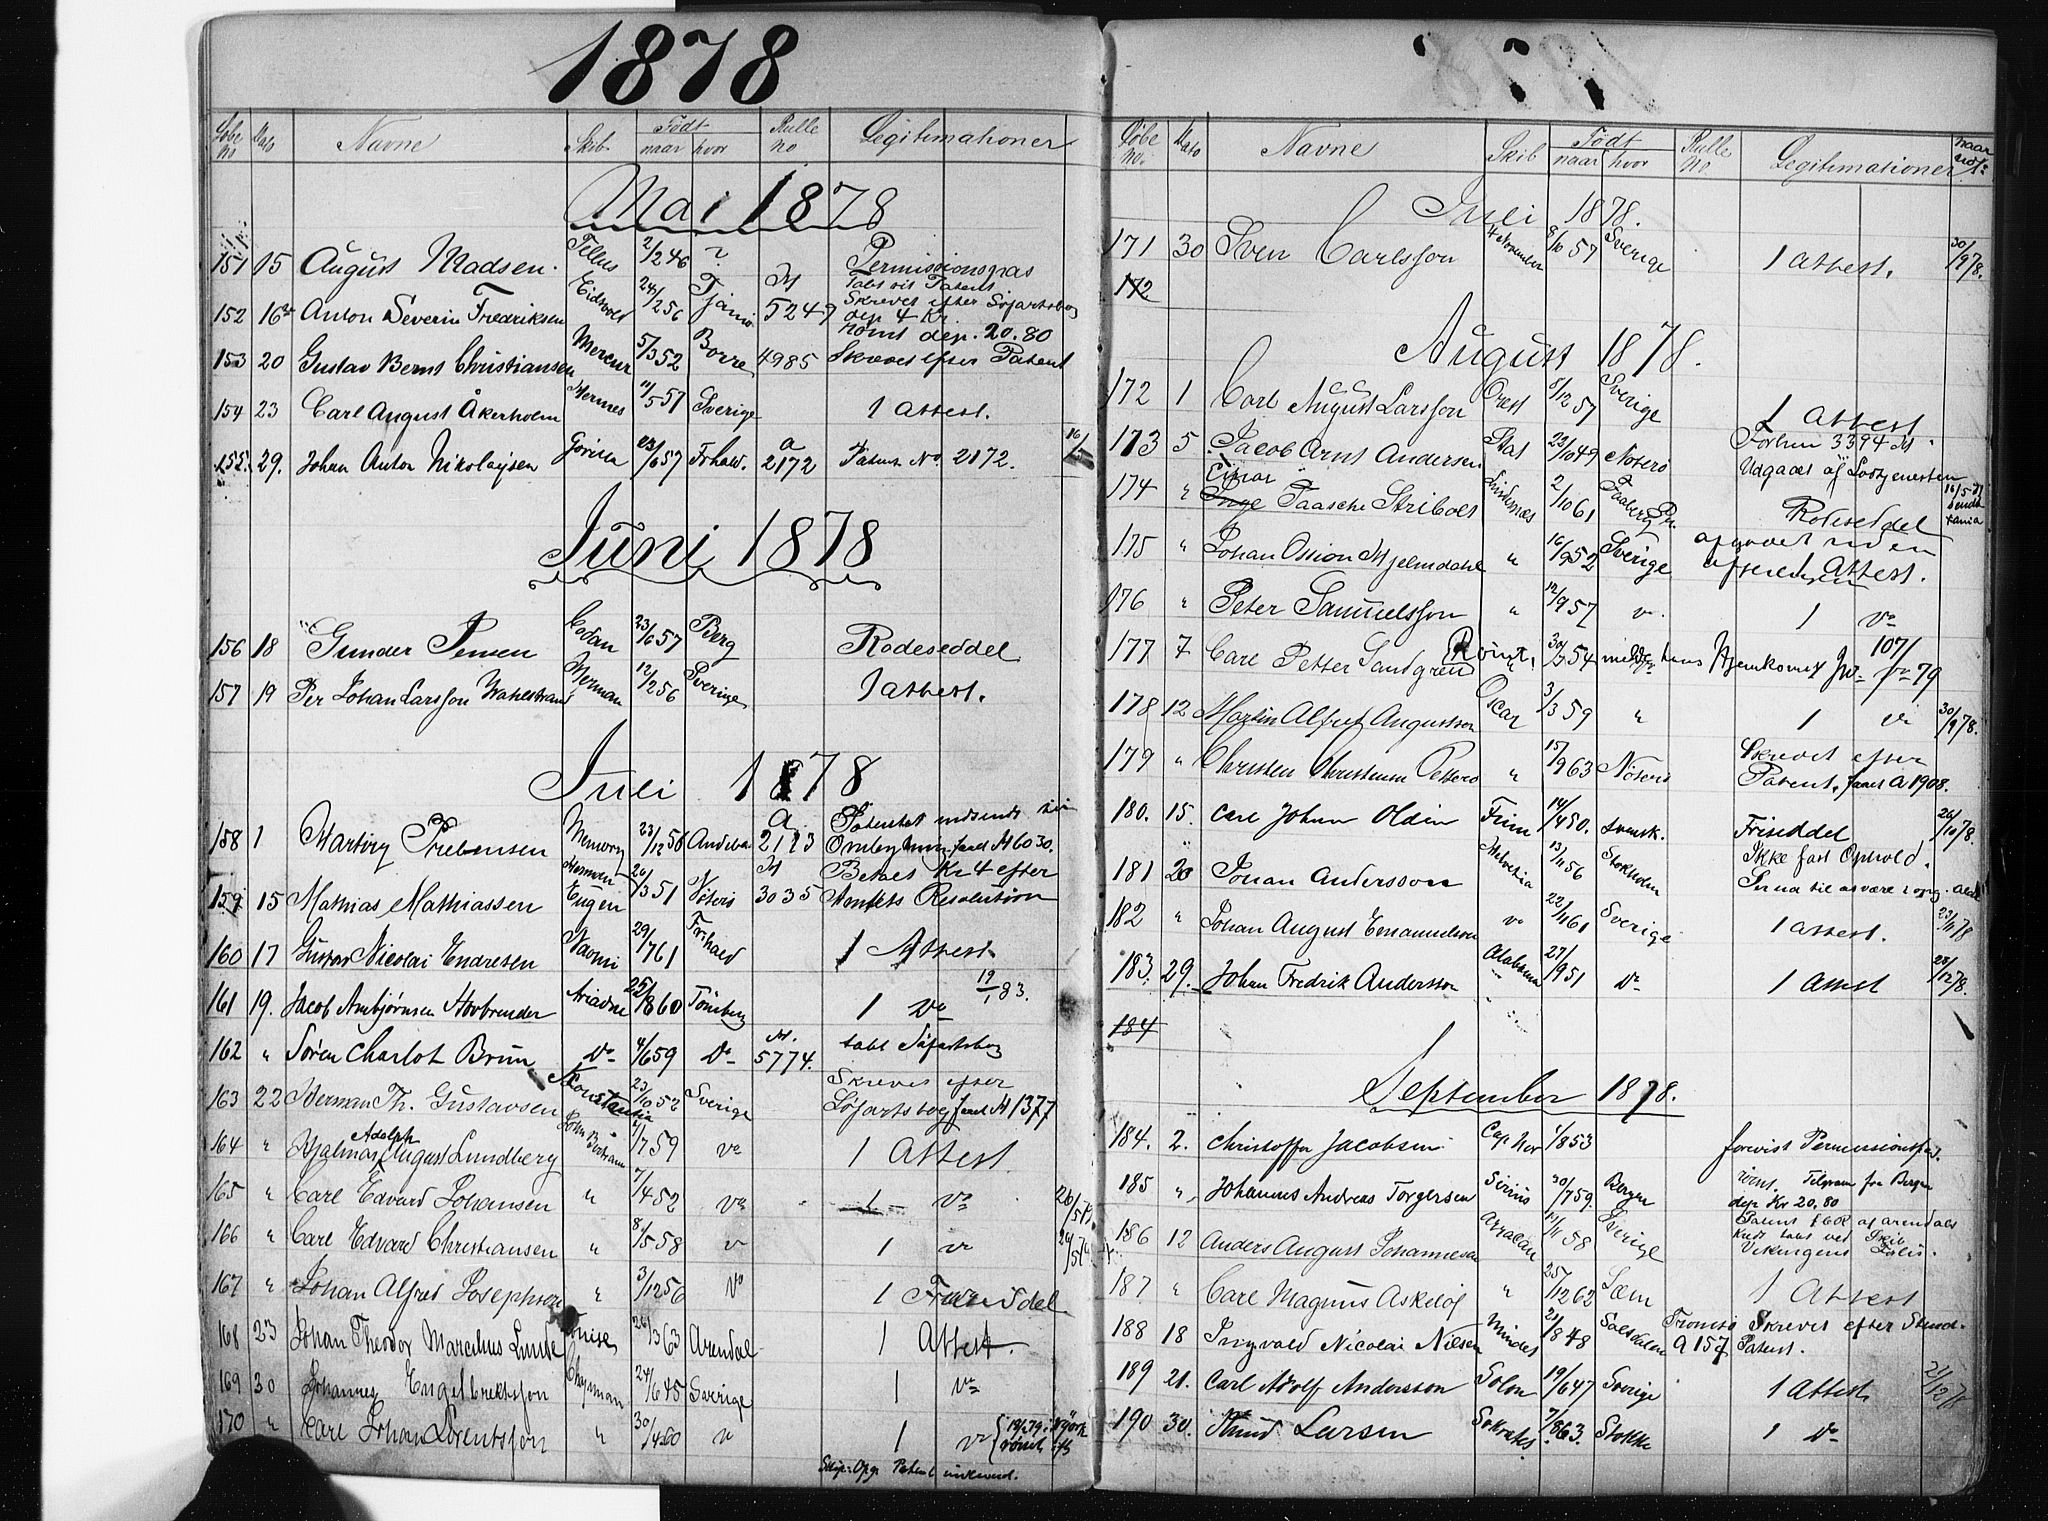 1878
Løbe No Dato Navne Skib Født naar hvor Rulle no Legitimationer
Mai 1878
151 15 August Madsen. Tellus 2/2 46 ? Permissionspas
Tabt sit Patent
152 16 Anton Severin Fredriksen Eidsvold 24/2 56 Tjømø M 5249 Skrevet efter Søfartsbog
dep. 4 Kr.
rømt dep. 20.80
153 20 Gustav Bernt Christiansen Mercur 5/3 52 Borre 4985 Skrevet efter Patent
154 23 Carl August Åkerholm Hermes 11/5 57 Sverige 1 Attest.
155. 29. Johan Anton Nikolaysen 23/6 57 Frhald. a 2172 Patent No. 2172.
Juni 1878
156 18 Gunder Jensen Codan 23/6 57 Berg Rodeseddel
157 19 Per Johan Larsson Wahlstrand Herman 12/2 56 Sverige 1 Attest.
Juli 1878
158 1 Hartvig Prebensen Memory 23/12 56 Andebu a. 2123 Patentet indsendt til
Ombytning, faaet M 6030.
159 15 Mathias Mathiassen Eugen 20/3 51 Nøterø M 3035 Betalt Kr 4 efter
Amtets Resolution
160 17 Gustav Nicolai Endresen Naomi 29/7 61 Frhald 1 Attest
161 19. Jacob Anbjørnsen Hovbrender Ariadne 25/8 60 Tönsberg 1 do 19/1 83.
162 " Søren Charlot Bruun do 4/6 59 do M. 5774. tabt Søfartsbog
163 22 Herman Th. Gustavsen Konstantia 23/10 52 Sverige Skrevet efter
Søfartsbog faaet M 1377
164 " Hjalmar Adolph August Lundberg John Bertram /7 59 do 1 Attest.
165 " Carl Edvard Johansen " 7/4 52 do 1 do
166 " Carl Edvard Christiansen " 8/5 58 do 1 do
167 " Johan Alfred Josephsen " 3/12 56 do 1 Friseddel
168 23 Johan Theodor Marcelius Lunde Louise 26/3 63 Arendal 1 Attest.
169 30 Johannes Engelbrektsson Chapman 24/6 45 Sverige 1 do
170 " Carl Johan Lorentsson " 30/4 60 do 1 do
rømt
Patent
Løbe No. Dato Navne Skib Født naar hvor Rulle No. Legitimationer naar
Juli 1878.
171 30 Sven Carlsson 4 November 8/10 57 Sverige 1 Attest. 30/9 78.
172
August 1878.
172 1 Carl August Larsson Orest 5/12 57 Sverige 1 Attest.
173 5. Jacob Arnt Andersen Stat 23/10 49 Noterø Forhen 3394 M
Udgaaet af Lodstjenesten
174 " Einar Inge Paasche Stribolt Lindesnæs 2/10 61 Faaberg Pr. Rodeseddel
175 " Johan Ossion Hjelmdahl " 16/9 52 Sverige 1 Attest.
176 " Peter Samuelsson " 12/9 57 do. 1 do
177 7 Carl Petter Sandgren Rømt, 30/7 54 hans Hjemkomst 107/79
178 12 Martin Alfred Augustsson Oscar 3/3 59 " 1 do 30/9 78.
179 " Christen Christensen " 15/9 63 Nøterø Skrevet efter
Patent, faaet A 1908.
180. 15. Carl Johan Oldin Trim 14/4 50. svensk. Friseddel 26/10 78.
181 20 Johan Andersson Helvetia 13/1 56 Stokholm Ikke fast Ophold.
182 " Johan August Emanuelson do 22/11 61 Sverige 1 Attest. 23/11 78
183. 29. Johan Fredrik Andersson Alabama 27/9 51 do 1 Attest 28/12 78.
184
September 1878.
184. 2. Christoffer Jacobsen Cap Nor 1/8 53 forevist Permissionspas.
185 ". Johannes Andreas Torgersen Sirius 30/7 59. Bergen rømt. Telegram fra Bergen
dep Kr 20.80
186 12 Anders August Johannesen Arracan 14/11 58 Sverige Patent af Arendals
Kreds tabt ved Skib
Vikingens Forlis.
187 " Carl Magnus Askelöf " 25/12 62 Sæm 1 Attest
188 18 Ingvald Nicolai Nilsen Mindet 21/8 48 Saltdalen Tromsø a 157 Skrevet efter
Patent.
189 21. Carl Adolf Andersson Solon 19/6 47 Sverige 1 Attest 21/12 78
190 30. Knud Larsen Sokrates 7/8 63. Stokke 1 do